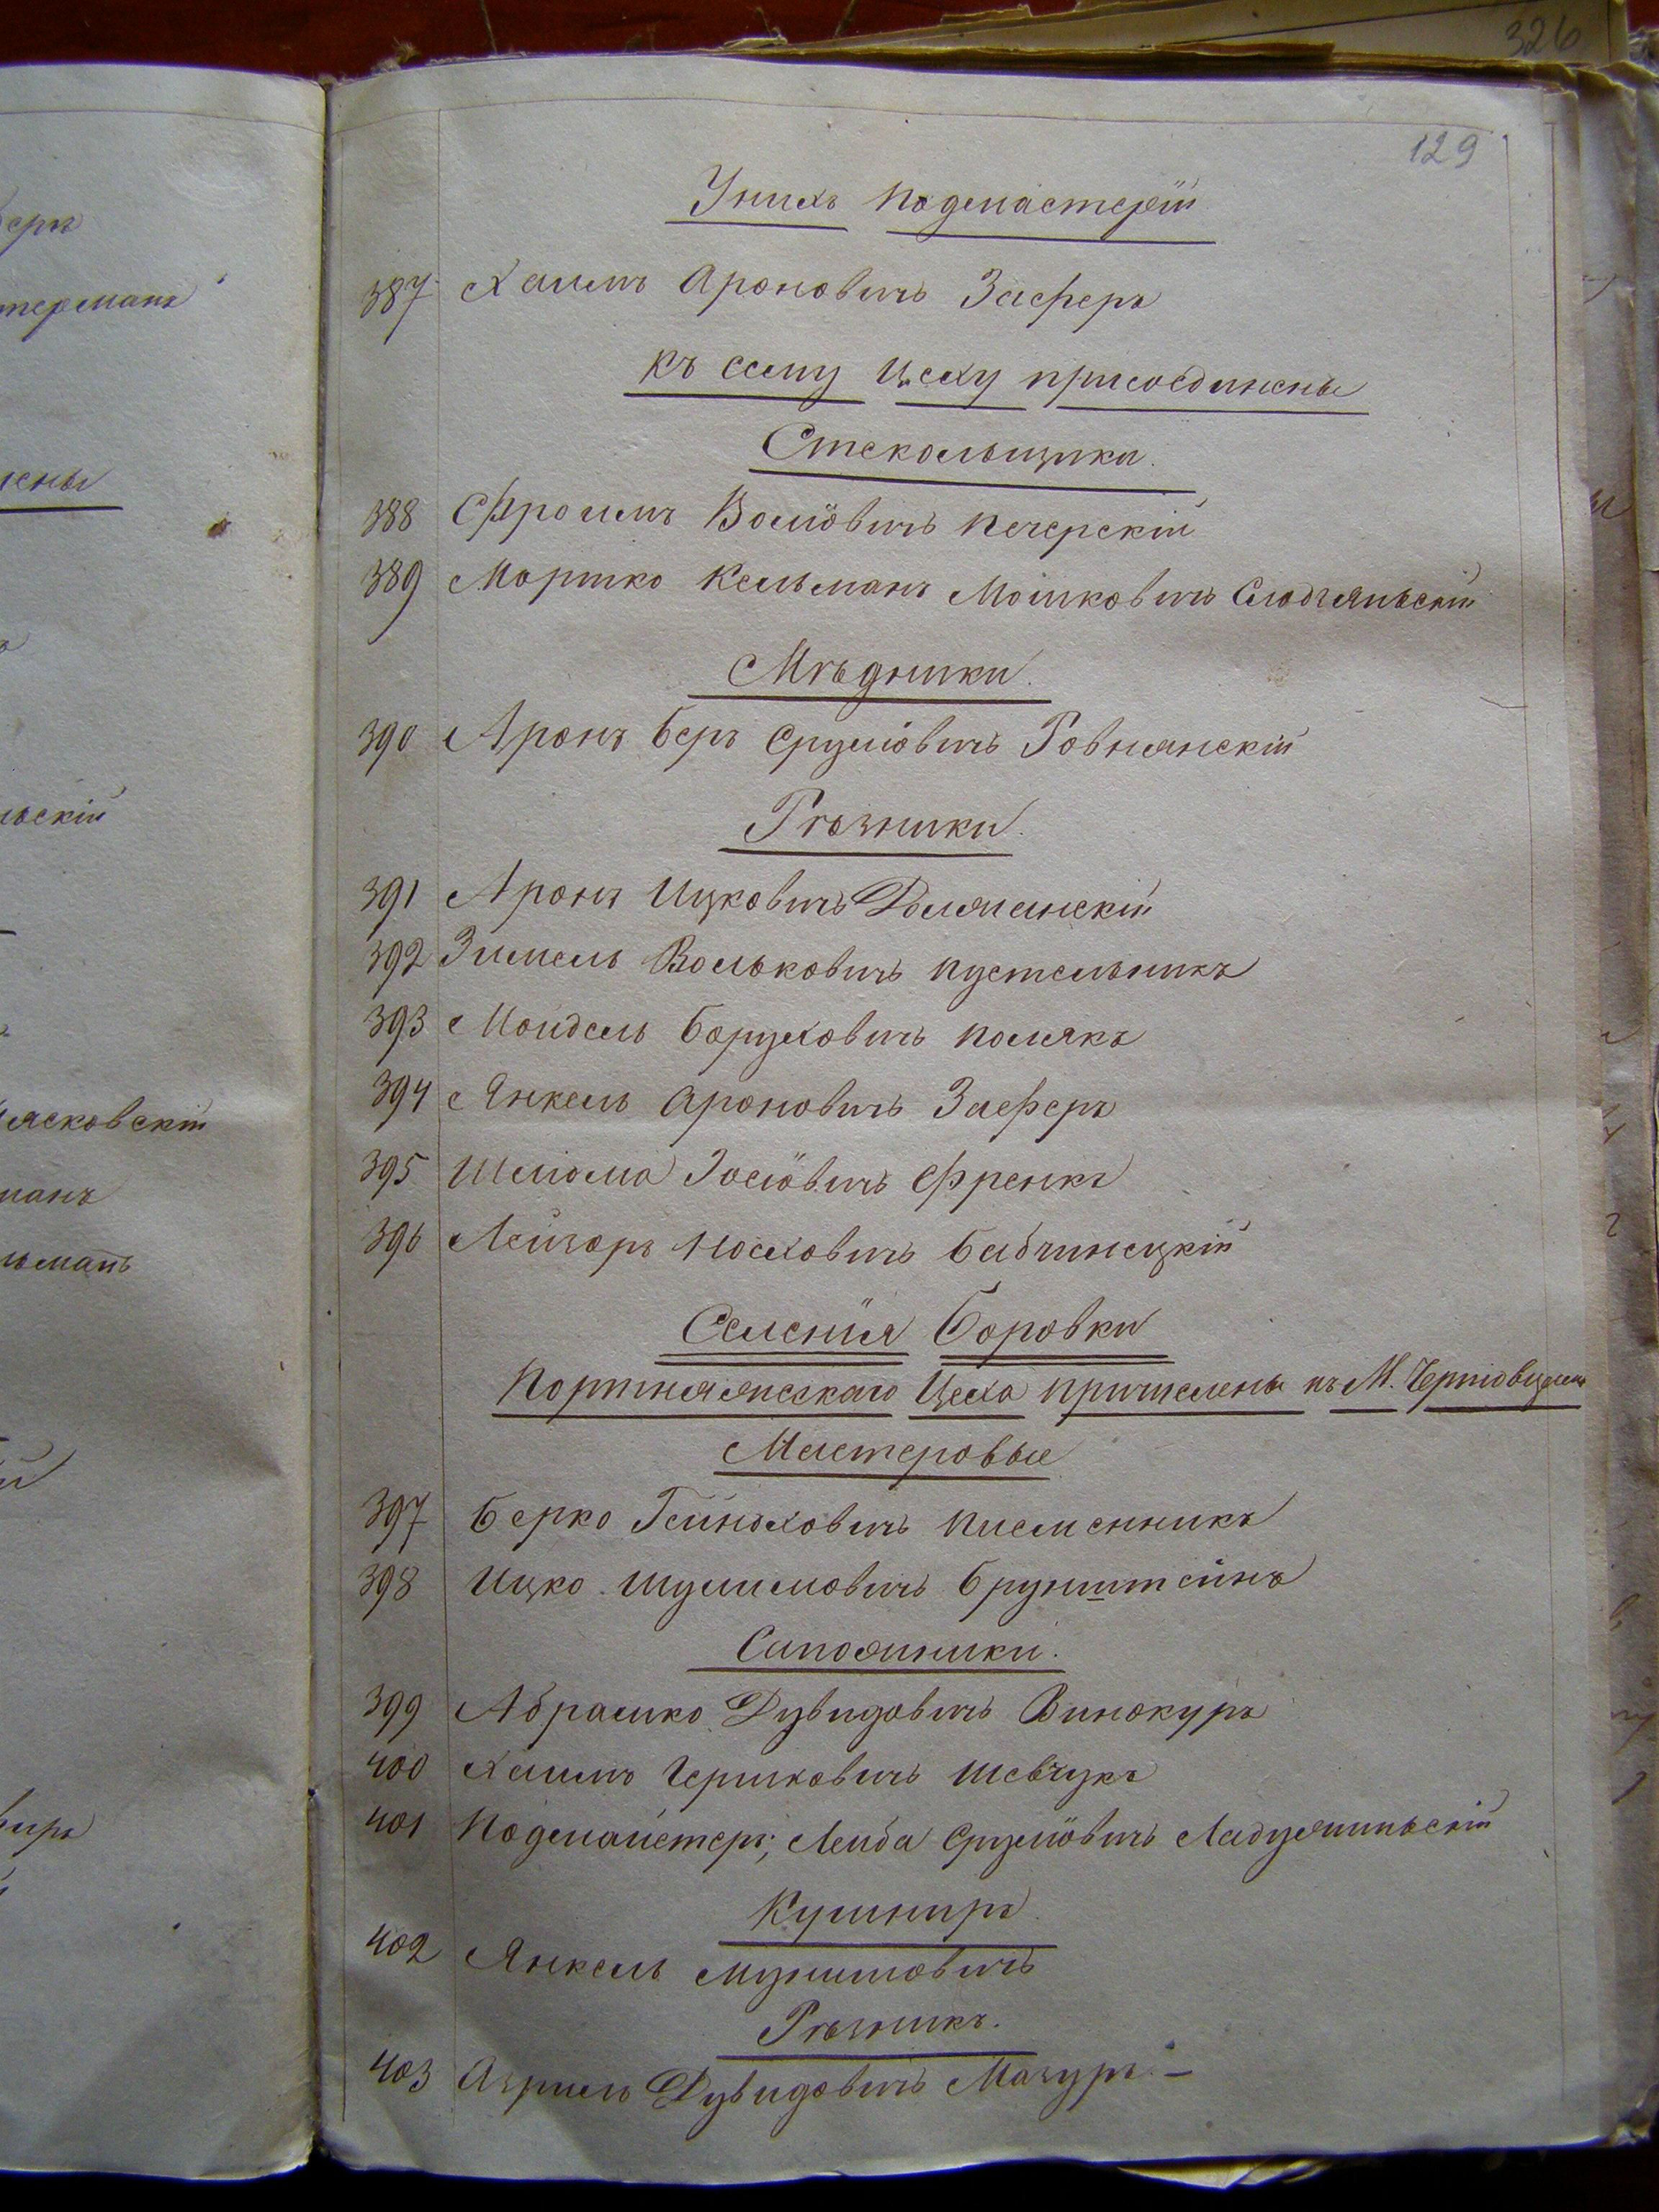 326
129
Унихъ подмастерій
387 Хаимъ Ароновичь Засферъ
Къ сему Цеху присоединены
Стекольщики.
388 Фроимъ Волїовичь Печерскій
389 Мортко Кельманъ Мошковичь
Мѣдники.
390 Аронъ Беръ Срулїовичь Ровнянскій
Рѣзники.
391 Аронъ Ицковичь
392 Зимель Вольковичь Пустельникъ
393 Мойдель Боруховичь Полякъ
394 Янкель Ароновичь Засферъ
395 Шліома Іосїовичь Френкъ
396 Лейзоръ Носховичь Бабчинецкій
Селенїя Боровки
Портняжескаго Цеха причислены къ М. Черніовцамъ
Мастеровые
397 Берко Гейноховичь Писменникъ
398 Ицко Шулимовичь Брунштейнъ
Сапожники.
399 Абрамко Дувидовичь Винокуръ
400 Хаимъ Гершковичь Шевчукъ
401 Подмайстеръ; Лейба Срулїовичь Ладыжинскій
Кушниръ
402 Янкель
Рѣзникъ.
403 Азриль Дувидовичь Мазуръ. —
ѣны
терманъ
ьскій
ясковскій
манъ
ьманъ